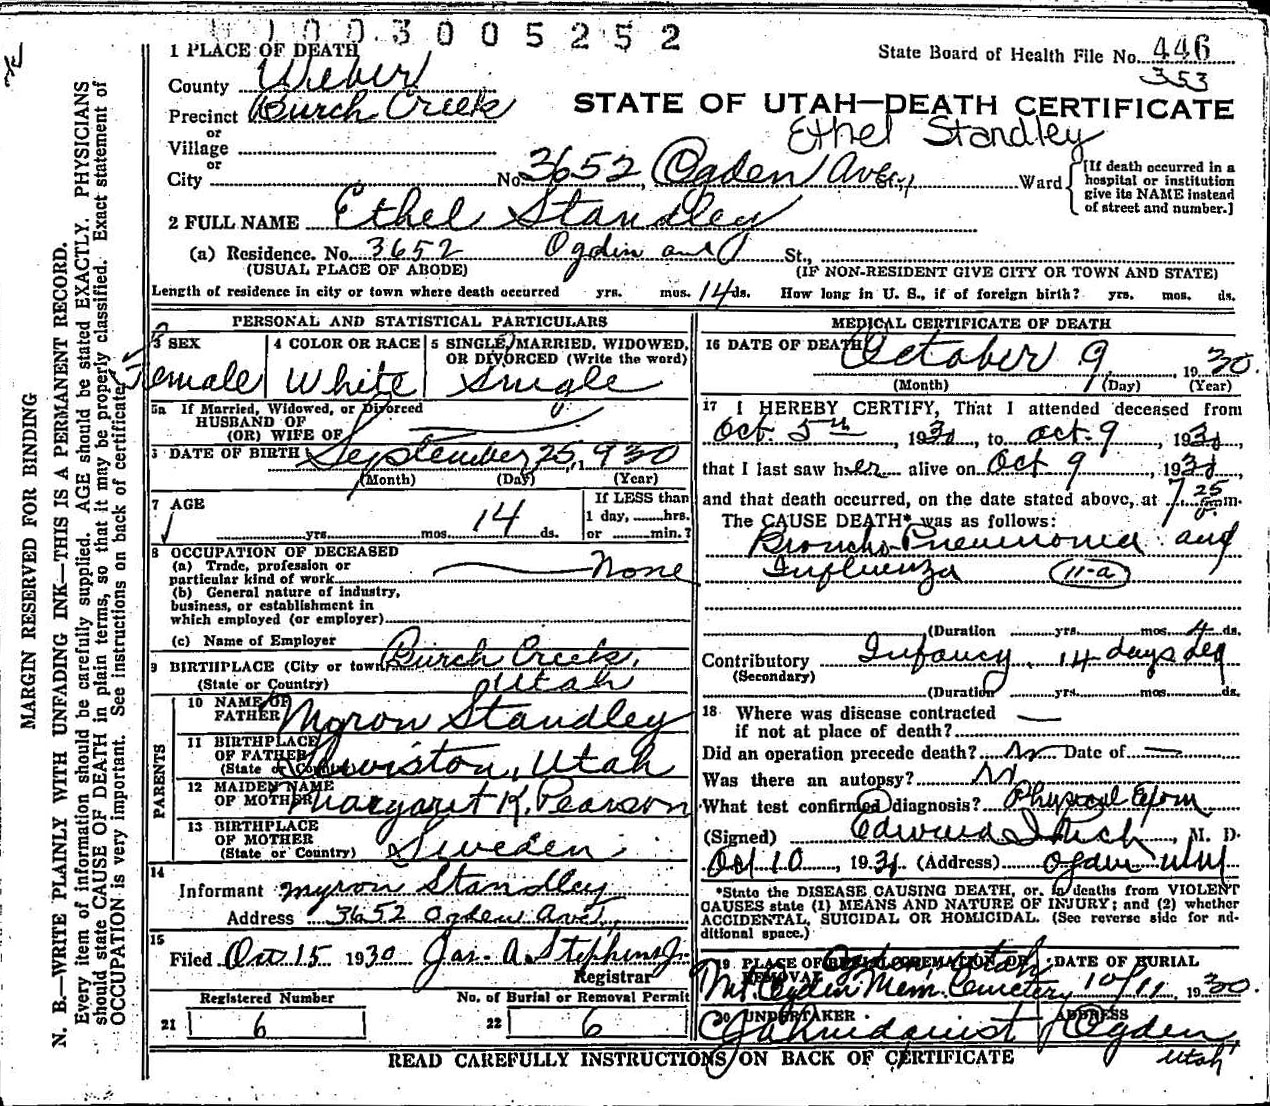 1003005252
1 PLACE OF DEATH
State Board of Health File No. 446
353
County Weber
Precinct Burch Creek
STATE OF UTAH—DEATH CERTIFICATE
Ethel Standley
or
Village
or
City No. 3652 Ogden Ave. St., Ward
[If death occurred in a hospital or institution give its NAME instead of street and number.]
2 FULL NAME Ethel Standley
(a) Residence. No. 3652 Ogden St.,
(USUAL PLACE OF ABODE) (IF NON-RESIDENT GIVE CITY OR TOWN AND STATE)
Length of residence in city or town where death occurred yrs. mos. 14 ds. How long in U. S., if of foreign birth? yrs. mos. ds.
PERSONAL AND STATISTICAL PARTICULARS
3 SEX 4 COLOR OR RACE 5 SINGLE, MARRIED, WIDOWED, OR DIVORCED (Write the word)
Female White Single
5a If Married, Widowed, or Divorced
HUSBAND OF
(OR) WIFE OF
6 DATE OF BIRTH September 25, 1930
(Month) (Day) (Year)
7 AGE
If LESS than
1 day, hrs.
yrs. mos. 14 ds. or min.?
8 OCCUPATION OF DECEASED
(a) Trade, profession or
particular kind of work None
(b) General nature of industry,
business, or establishment in
which employed (or employer)
(c) Name of Employer
9 BIRTHPLACE (City or town) Burch Creek,
(State or Country) Utah
PARENTS
10 NAME OF
FATHER Myron Standley
11 BIRTHPLACE
OF FATHER
(State or Country) Lewiston, Utah
12 MAIDEN NAME
OF MOTHER Margaret K. Pearson
13 BIRTHPLACE
OF MOTHER
(State or Country) Sweden
14
Informant Myron Standley
Address 3652 Ogden Ave.
15
Filed Oct 15 1930 Jas. A. Stephens Jr.
Registrar
Registered Number No. of Burial or Removal Permit
21 6 22 6
MEDICAL CERTIFICATE OF DEATH
16 DATE OF DEATH October 9, 1930.
(Month) (Day) (Year)
17 I HEREBY CERTIFY, That I attended deceased from
Oct. 5th, 1930, to Oct. 9, 1930,
that I last saw her alive on Oct 9, 1930,
and that death occurred, on the date stated above, at 7 25 m.
The CAUSE DEATH* was as follows:
Broncho-Pneumonia and
Influenza 11-a
(Duration yrs. mos. 4 ds.
Contributory Infancy, 14 days
(Secondary)
(Duration yrs. mos. ds.
18 Where was disease contracted
if not at place of death?
Did an operation precede death? No Date of
Was there an autopsy? No
What test confirmed diagnosis? Physical Exam
(Signed) Edward I Rich, M. D.
Oct 10, 1930 (Address) Ogden Utah
*State the DISEASE CAUSING DEATH, or, in deaths from VIOLENT
CAUSES state (1) MEANS AND NATURE OF INJURY; and (2) whether
ACCIDENTAL, SUICIDAL OR HOMICIDAL. (See reverse side for additional space.)
19 PLACE OF BURIAL, CREMATION OR REMOVAL DATE OF BURIAL
Ogden, Utah
Mt. Ogden Mem. Cemetery 10/11, 1930.
20 UNDERTAKER ADDRESS
Ogden
Utah
READ CAREFULLY INSTRUCTIONS ON BACK OF CERTIFICATE
MARGIN RESERVED FOR BINDING
N. B.—WRITE PLAINLY WITH UNFADING INK—THIS IS A PERMANENT RECORD.
Every item of information should be carefully supplied. AGE should be stated EXACTLY. PHYSICIANS
should state CAUSE OF DEATH in plain terms, so that it may be properly classified. Exact statement of
OCCUPATION is very important. See instructions on back of certificate.